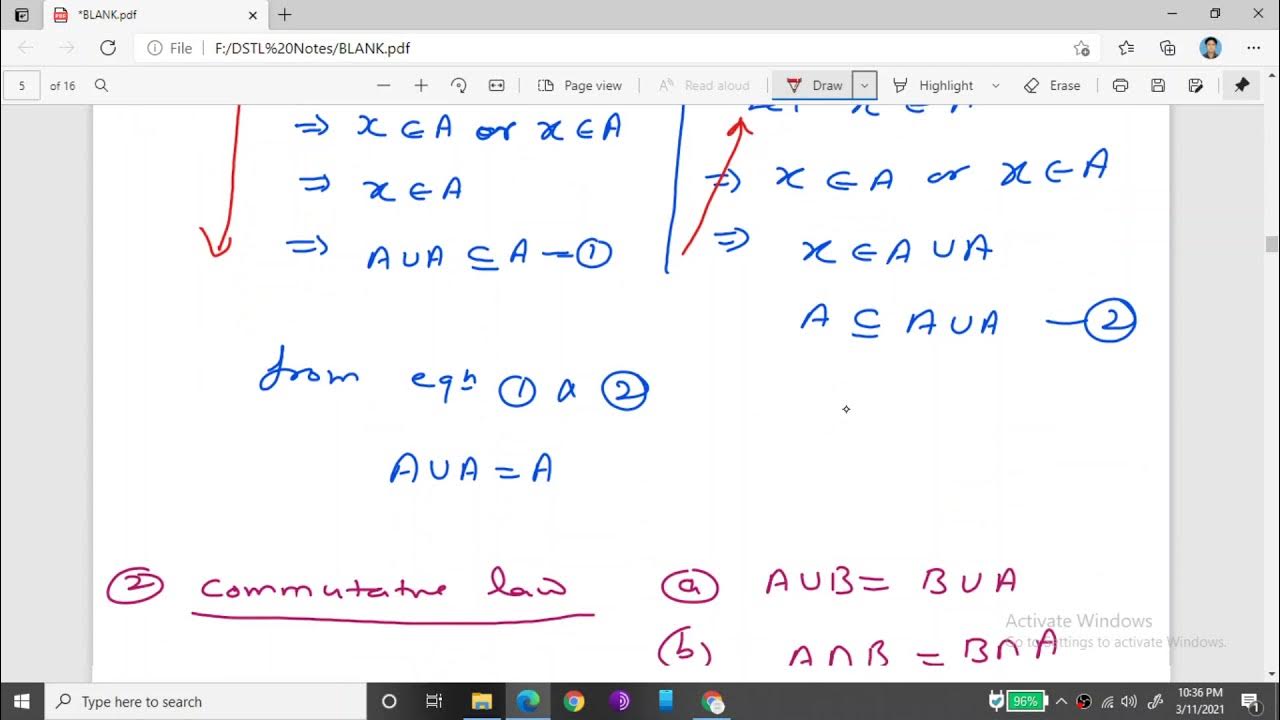 *BLANK.pdf
File F:/DSTL%20Notes/BLANK.pdf
5 of 16 Page view Read aloud Draw Highlight Erase
⇒ x ∈ A or x ∈ A
⇒ x ∈ A
⇒ A ∪ A ⊆ A — ①
x ∈ A
⇒ x ∈ A or x ∈ A
⇒ x ∈ A ∪ A
A ⊆ A ∪ A — ②
from eqn ① & ②
A ∪ A = A
② Commutative law (a) A ∪ B = B ∪ A
(b) A ∩ B = B ∩ A
Activate Windows
Go to Settings to activate Windows.
Type here to search
96%
10:36 PM
3/11/2021
1